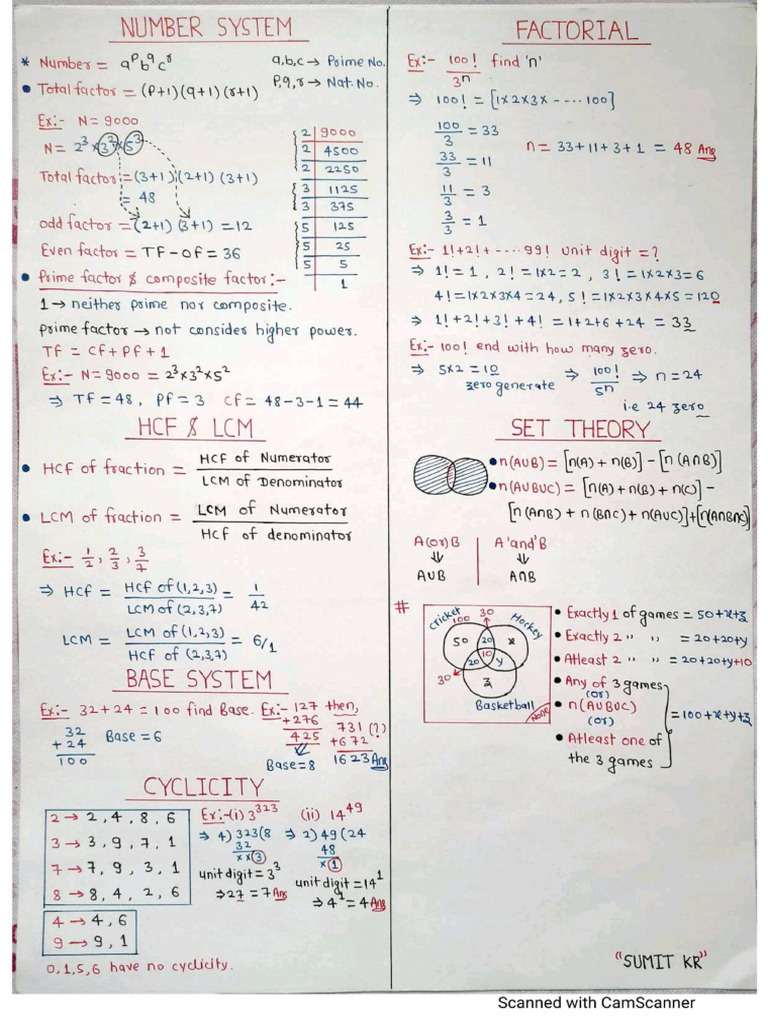 NUMBER SYSTEM
* Number = aᵖb^qcʳ a,b,c → Prime No.
P,q,r → Nat. No.
• Total factor = (P+1)(q+1)(r+1)
Ex:- N = 9000
N = 2³×3²×5³
Total factor = (3+1)(2+1)(3+1)
= 48
odd factor = (2+1)(3+1) = 12
Even factor = TF - OF = 36
2 | 9000
2 | 4500
2 | 2250
3 | 1125
3 | 375
5 | 125
5 | 25
5 | 5
1
• Prime factor & composite factor:-
1 → neither prime nor composite.
prime factor → not consider higher power.
TF = CF + PF + 1
Ex:- N = 9000 = 2³×3²×5²
⇒ TF = 48, PF = 3 CF = 48-3-1 = 44
HCF & LCM
• HCF of fraction = HCF of Numerator / LCM of Denominator
• LCM of fraction = LCM of Numerator / HCF of denominator
Ex:- 1/2, 2/3, 3/7
⇒ HCF = HCF of (1,2,3) / LCM of (2,3,7) = 1/42
LCM = LCM of (1,2,3) / HCF of (2,3,7) = 6/1
BASE SYSTEM
Ex:- 32+24 = 100 find Base.
32
+ 24
100
Base = 6
Ex:- 127 then,
+276
425
Base = 8
731 (?)
+672
1623 Ans
CYCLICITY
2 → 2, 4, 8, 6
3 → 3, 9, 7, 1
7 → 7, 9, 3, 1
8 → 8, 4, 2, 6
4 → 4, 6
9 → 9, 1
0,1,5,6 have no cyclicity.
Ex:-(i) 3³²³
⇒ 4)323(8
32
××3
unit digit = 3³
⇒ 27 = 7 Ans
(ii) 14⁴⁹
⇒ 2)49(24
48
×1
unit digit = 14¹
⇒ 4¹ = 4 Ans
FACTORIAL
Ex:- 100!/3ⁿ find 'n'
⇒ 100! = [1×2×3×----100]
100/3 = 33
33/3 = 11
11/3 = 3
3/3 = 1
n = 33+11+3+1 = 48 Ans
Ex:- 1!+2!+----99! unit digit = ?
⇒ 1! = 1, 2! = 1×2 = 2, 3! = 1×2×3 = 6
4! = 1×2×3×4 = 24, 5! = 1×2×3×4×5 = 120
⇒ 1!+2!+3!+4! = 1+2+6+24 = 33
Ex:- 100! end with how many zero.
⇒ 5×2 = 10 ⇒ 100!/5ⁿ ⇒ n = 24
zero generate
i.e 24 zero
SET THEORY
• n(AUB) = [n(A) + n(B)] - [n(A∩B)]
• n(AUBUC) = [n(A) + n(B) + n(C)] -
[n(A∩B) + n(B∩C) + n(AUC)] + [n(A∩B∩C)]
A(or)B | A'and'B
⇓ ⇓
AUB | A∩B
#
Cricket
100
30
Hockey
50
20
x
10
20
y
30
z
Basketball
None
• Exactly 1 of games = 50+x+z
• Exactly 2 " " = 20+20+y
• Atleast 2 " " = 20+20+y+10
• Any of 3 games
(or)
• n(AUBUC)
(or)
• Atleast one of
the 3 games
= 100+x+y+z
"SUMIT KR"
Scanned with CamScanner